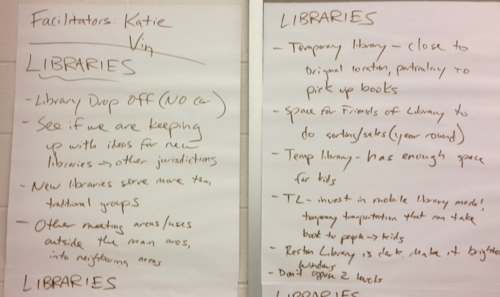 Facilitators: Katie
Vin
LIBRARIES
- Library Drop Off (No car)
- See if we are keeping
up with ideas for new
libraries → other jurisdictions
- New libraries serve more than
traditional groups
- Other meeting areas/uses
outside the main area,
into neighboring areas
LIBRARIES
LIBRARIES
- Temporary library - close to
original location, particularly to
pick up books
- Space for Friends of Library to
do sorting/sales (year round)
- Temp library - has enough space
for kids
- TL - invest in mobile library model,
temporary transportation that can take
book to people → kids
- Reston Library is dark. Make it brighter
windows
- Don't oppose 2 levels
LIBRARIES